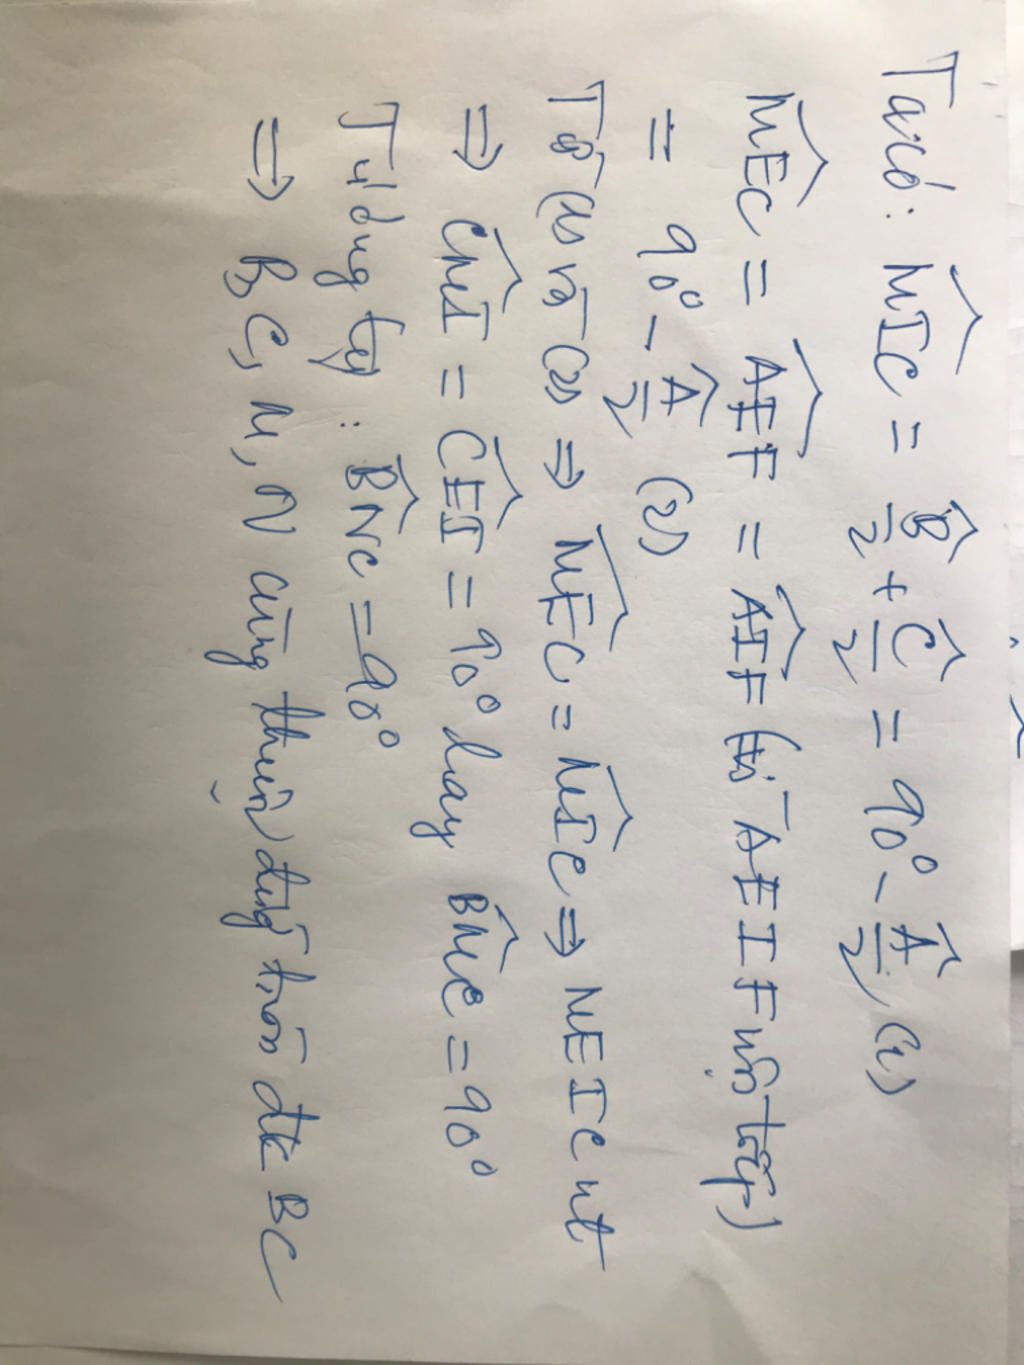 Ta có: $\widehat{MIC} = \frac{\widehat{B}}{2} + \frac{\widehat{C}}{2} = 90^0 - \frac{\widehat{A}}{2}$ (1)
$\widehat{MEC} = \widehat{AEF} = \widehat{AIF}$ (tứ AEIF nội tiếp)
$= 90^0 - \frac{\widehat{A}}{2}$ (2)
Từ (1) và (2) ⇒ $\widehat{MEC} = \widehat{MIC}$ ⇒ MEIC nt
⇒ $\widehat{CMI} = \widehat{CEI} = 90^0$ hay $\widehat{BMC} = 90^0$
Tương tự: $\widehat{BNC} = 90^0$
⇒ B, C, M, N cùng thuộc đường tròn đk BC